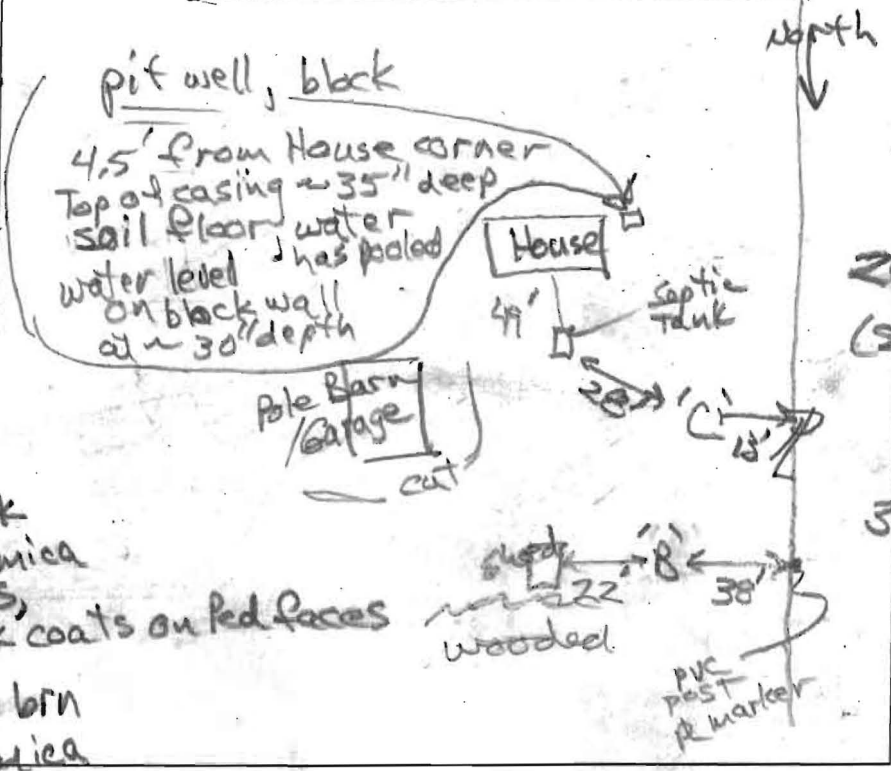 North
pit well, block
4.5' from House corner
Top of casing ~ 35" deep
soil floor, water
has pooled
water level
on block wall
at ~ 30" depth
House
49'
Septic
Tank
28'
'C'
13'
Pole Barn
/Garage
cut
shed
22'
'B'
38'
wooded
pvc
post
marker
mica
coats on Ped faces
brn
mica
2
3